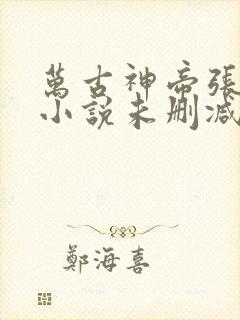 萬古神帝張
小說未刪減
鄭海喜